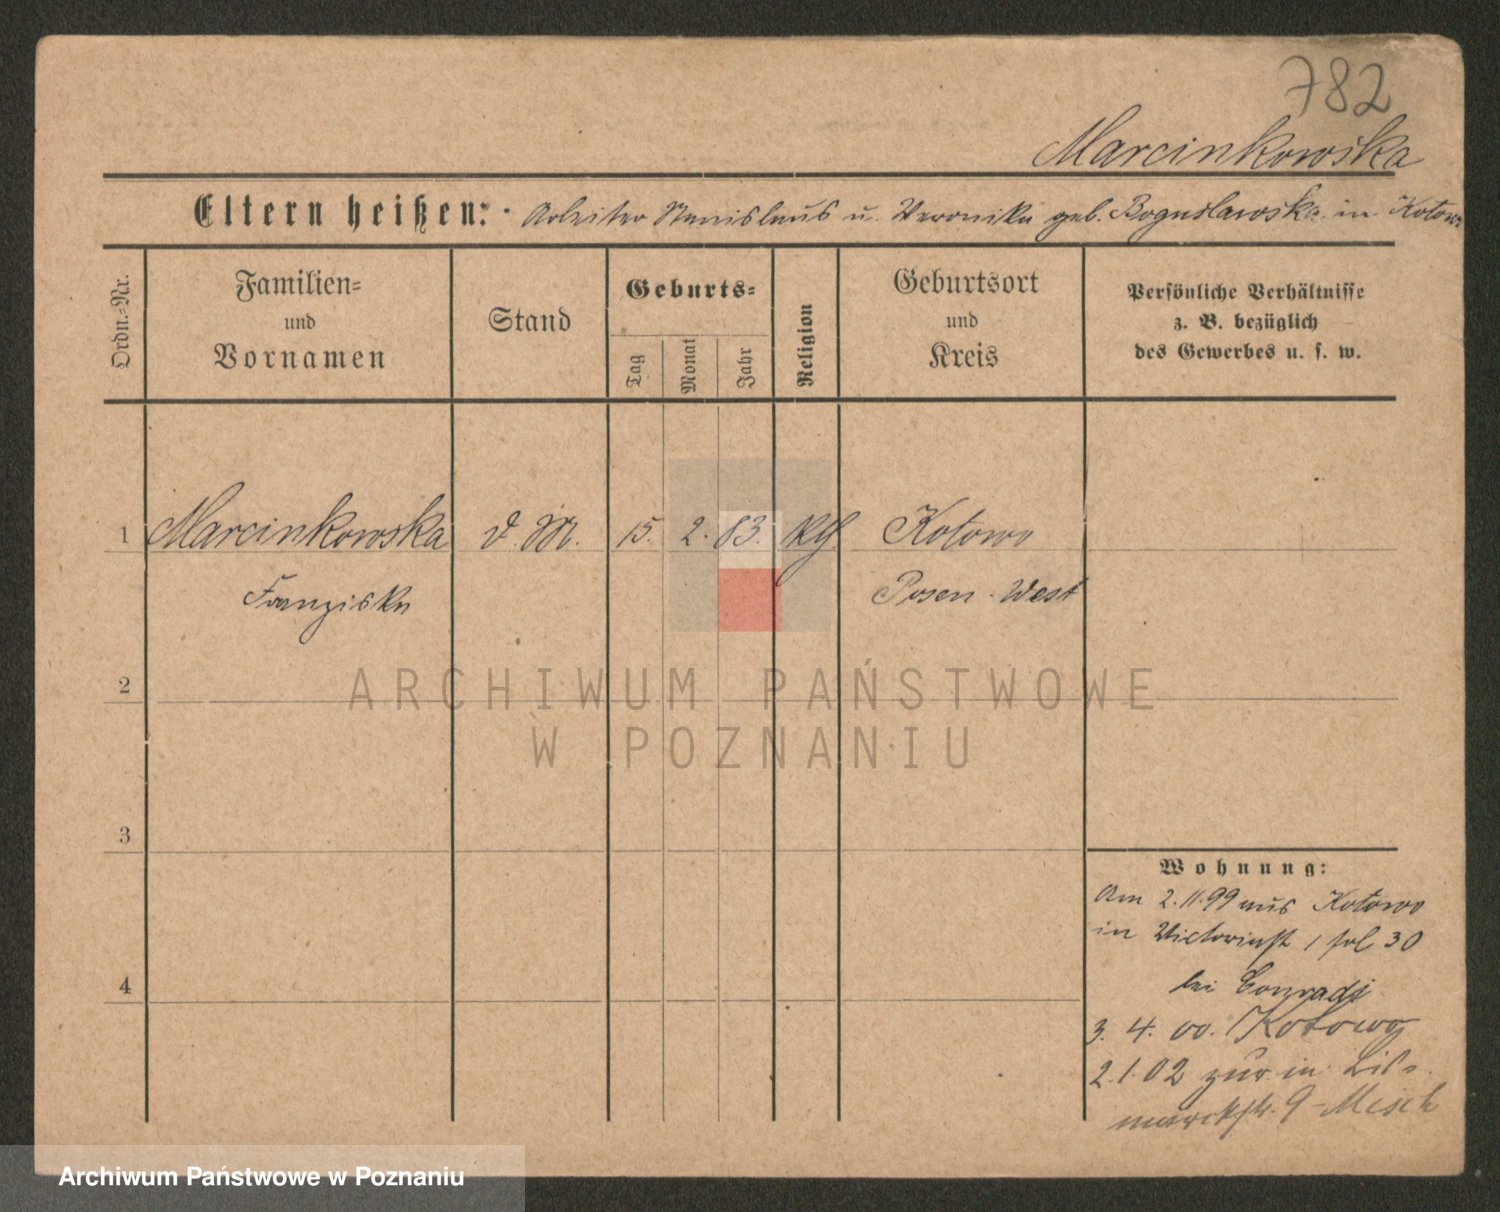 782
Marcinkowska
Eltern heißen: Arbeiter Stanislaus u. Veronika geb. Boguslawska in Kotowo
Ordn.-Nr.
Familien-
und
Vornamen
Stand
Geburts-
Tag
Monat
Jahr
Religion
Geburtsort
und
Kreis
Persönliche Verhältnisse
z. B. bezüglich
des Gewerbes u. s. w.
1 Marcinkowska d. M. 15. 2. 83. kth. Kotowo
Franziska Posen-West
2
3
4
Wohnung:
Am 2.11.99 aus Kotowo
in Victoriast 1 fol 30
bei Conradi
3. 4. 00. Kotowo
2.1.02 zur in Bis-
marckstr. 9 - Misch
ARCHIWUM PAŃSTWOWE
W POZNANIU
Archiwum Państwowe w Poznaniu